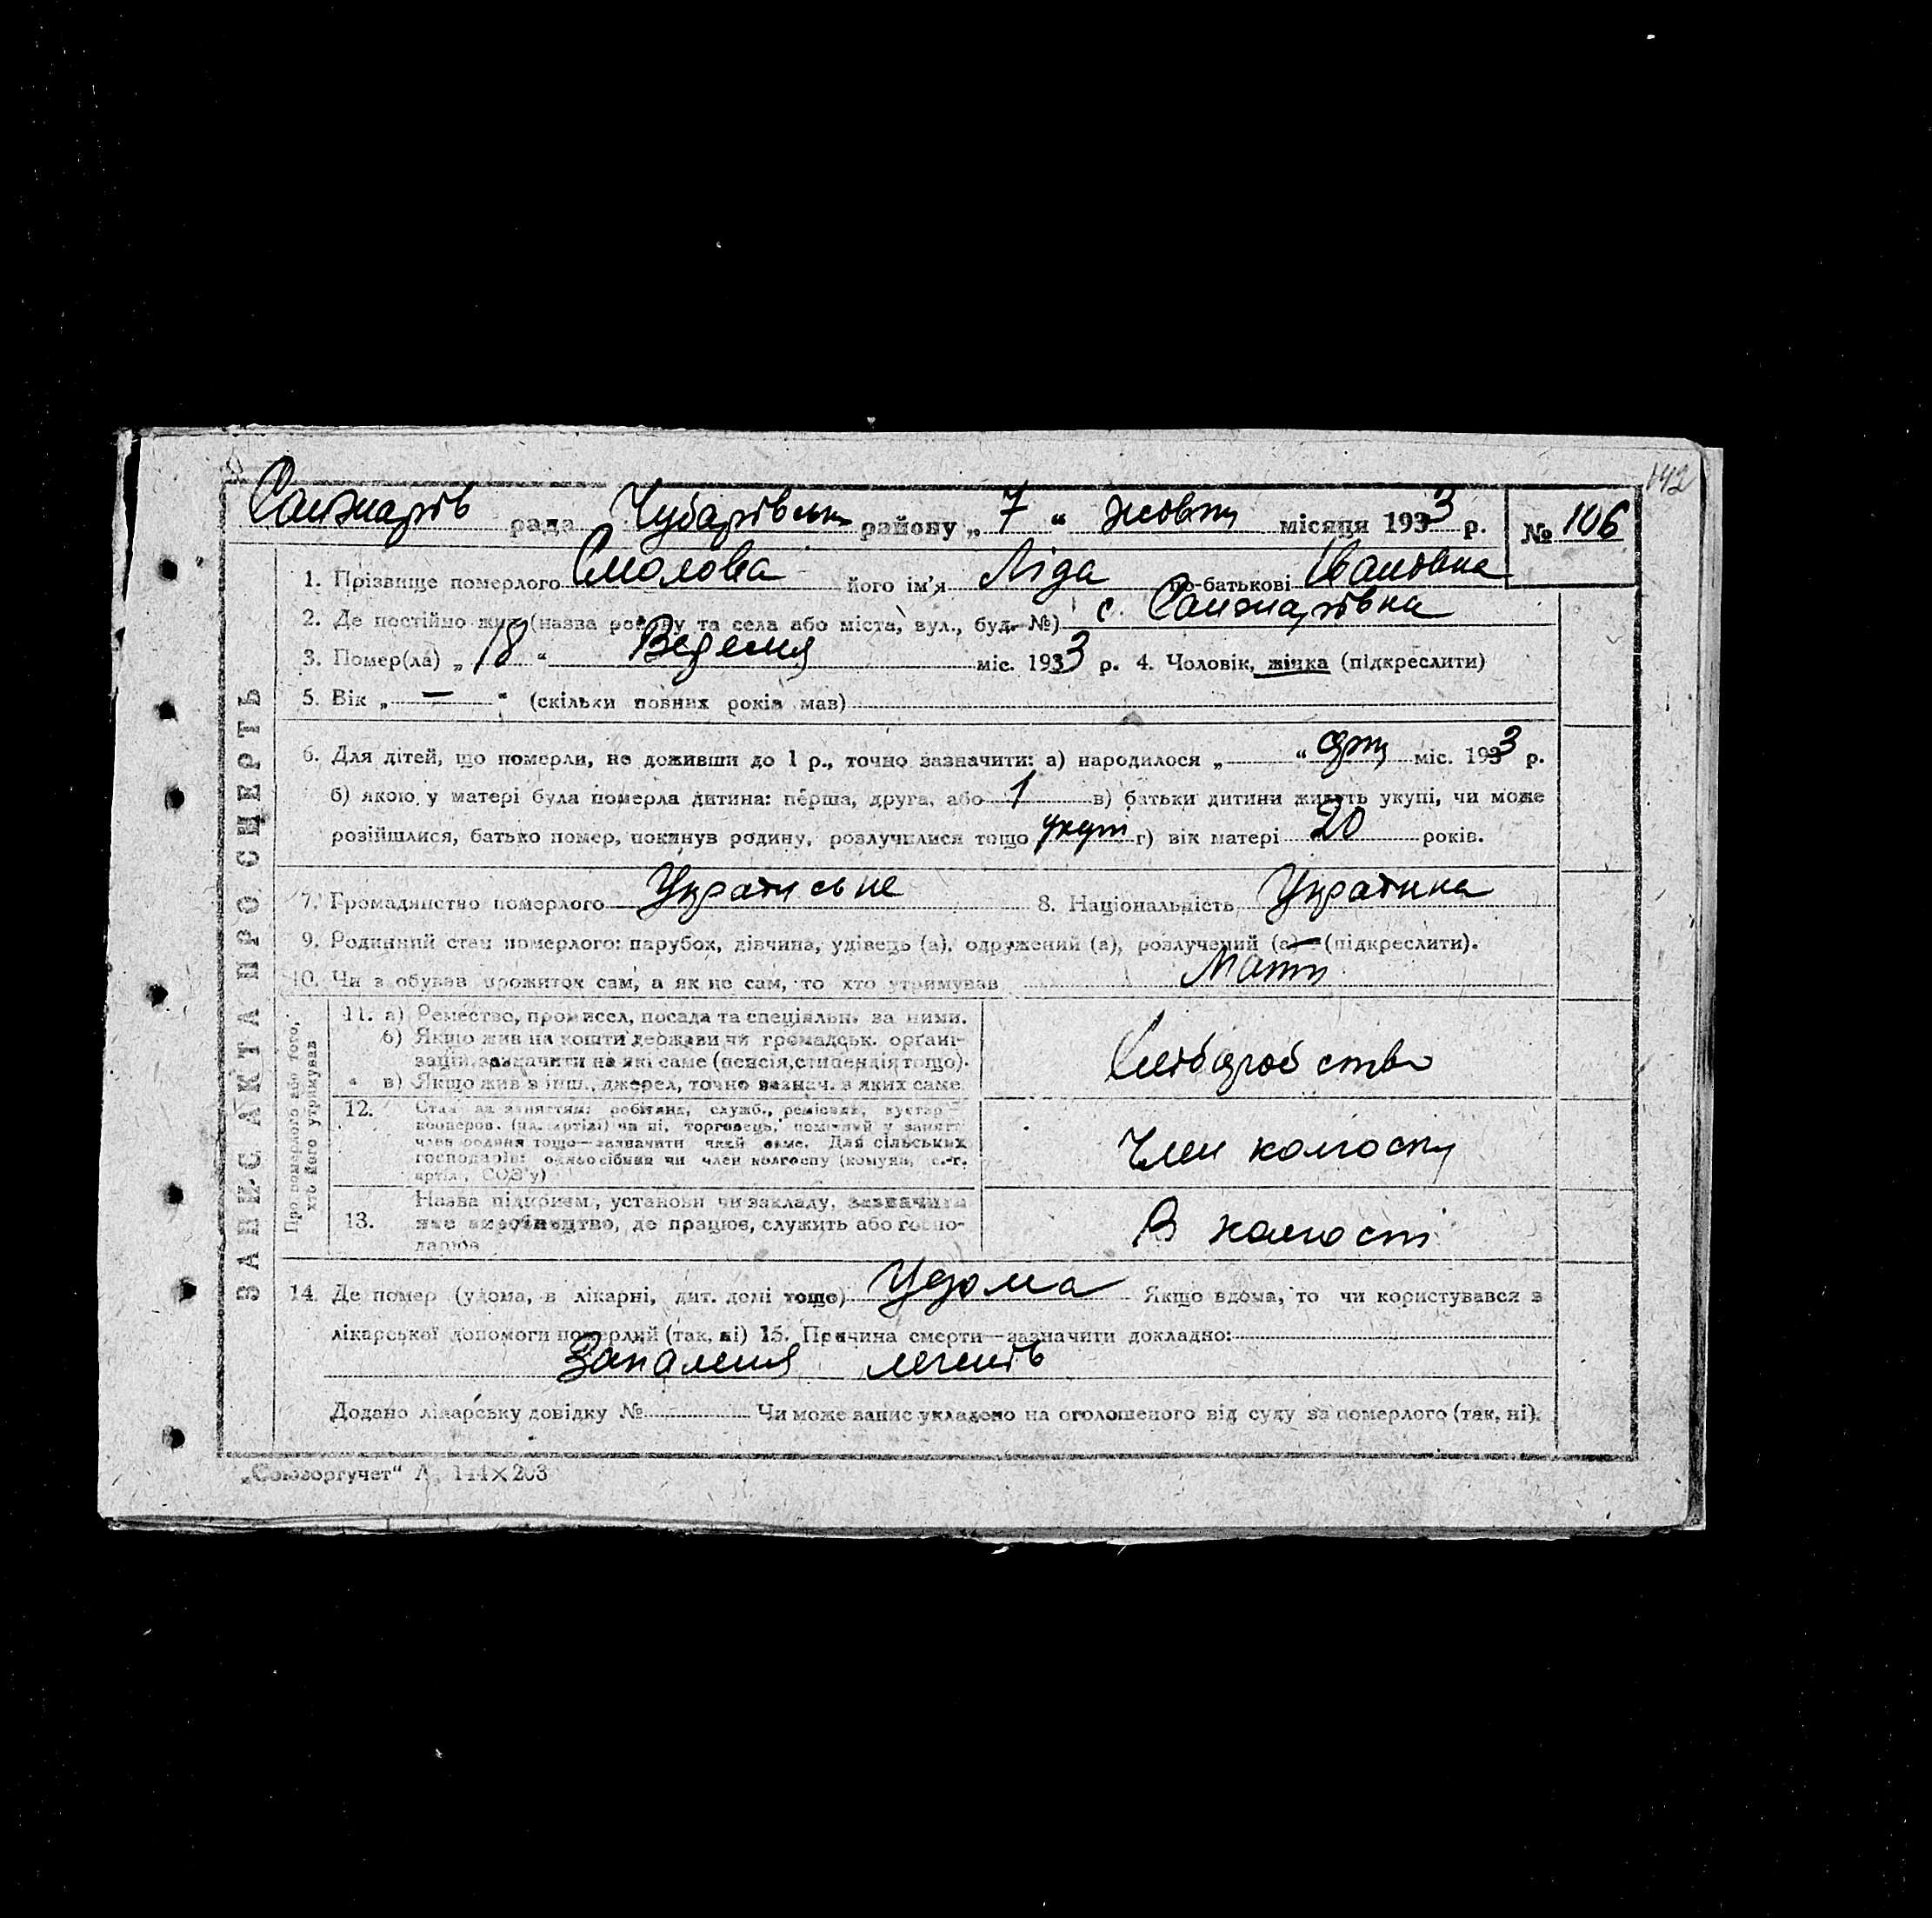 142
Санжарів рада Чубарівськ району „ 7 “ жовтн місяця 1933 р. № 106
1. Прізвище померлого Смолова його ім'я Ліда по-батькові Івановна
2. Де постійно жив (назва району та села або міста, вул., буд. №) с. Санжарівка
3. Помер(ла) „ 18 “ Вересня міс. 1933 р. 4. Чоловік, жінка (підкреслити)
5. Вік „ — “ (скільки повних років мав)
6. Для дітей, що померли, не доживши до 1 р., точно зазначити: а) народилося „ “ міс. 1933 р.
б) якою у матері була померла дитина: перша, друга, або 1 в) батьки дитини живуть укупі, чи може
розійшлися, батько помер, покинув родину, розлучилися тощо укупі г) вік матері 20 років.
7. Громадянство померлого Українське 8. Національність Українка
9. Родинний стан померлого: парубок, дівчина, удівець (а), одружений (а), розлучений (а) — (підкреслити).
10. Чи здобував прожиток сам, а як не сам, то хто утримував Мати
ЗАПИС АКТА ПРО СМЕРТЬ
Про померлого або того,
хто його утримував
11. а) Ремество, промисел, посада та спеціяльн. за ними.
б) Якщо жив на кошти держави чи громадськ. організації, зазначити на які саме (пенсія, стипендія тощо).
в) Якщо жив з інш. джерел, точно зазнач. з яких саме.
Хліборобство
12. Стан за заняттям: робітник, служб., ремісник, кустар
кооперов. (чл. артілі) чи ні, торговець, помічний у занятті
член родини тощо—зазначити який саме. Для сільських
господарів: одноосібник чи член колгоспу (комуни, с.-г.
артілі, СОЗ'у)
Член колгоспу
13. Назва підприєм., установи чи закладу, зазначити
яке виробництво, де працює, служить або господарює
В колгоспі
14. Де помер (удома, в лікарні, дит. домі тощо) Удома Якщо вдома, то чи користувався з
лікарської допомоги померлий (так, ні) 15. Причина смерти—зазначити докладно:
Запалення легенів
Додано лікарську довідку № Чи може запис укладено на оголошеного від суду за померлого (так, ні).
„Союзоргучет“ А 144×203